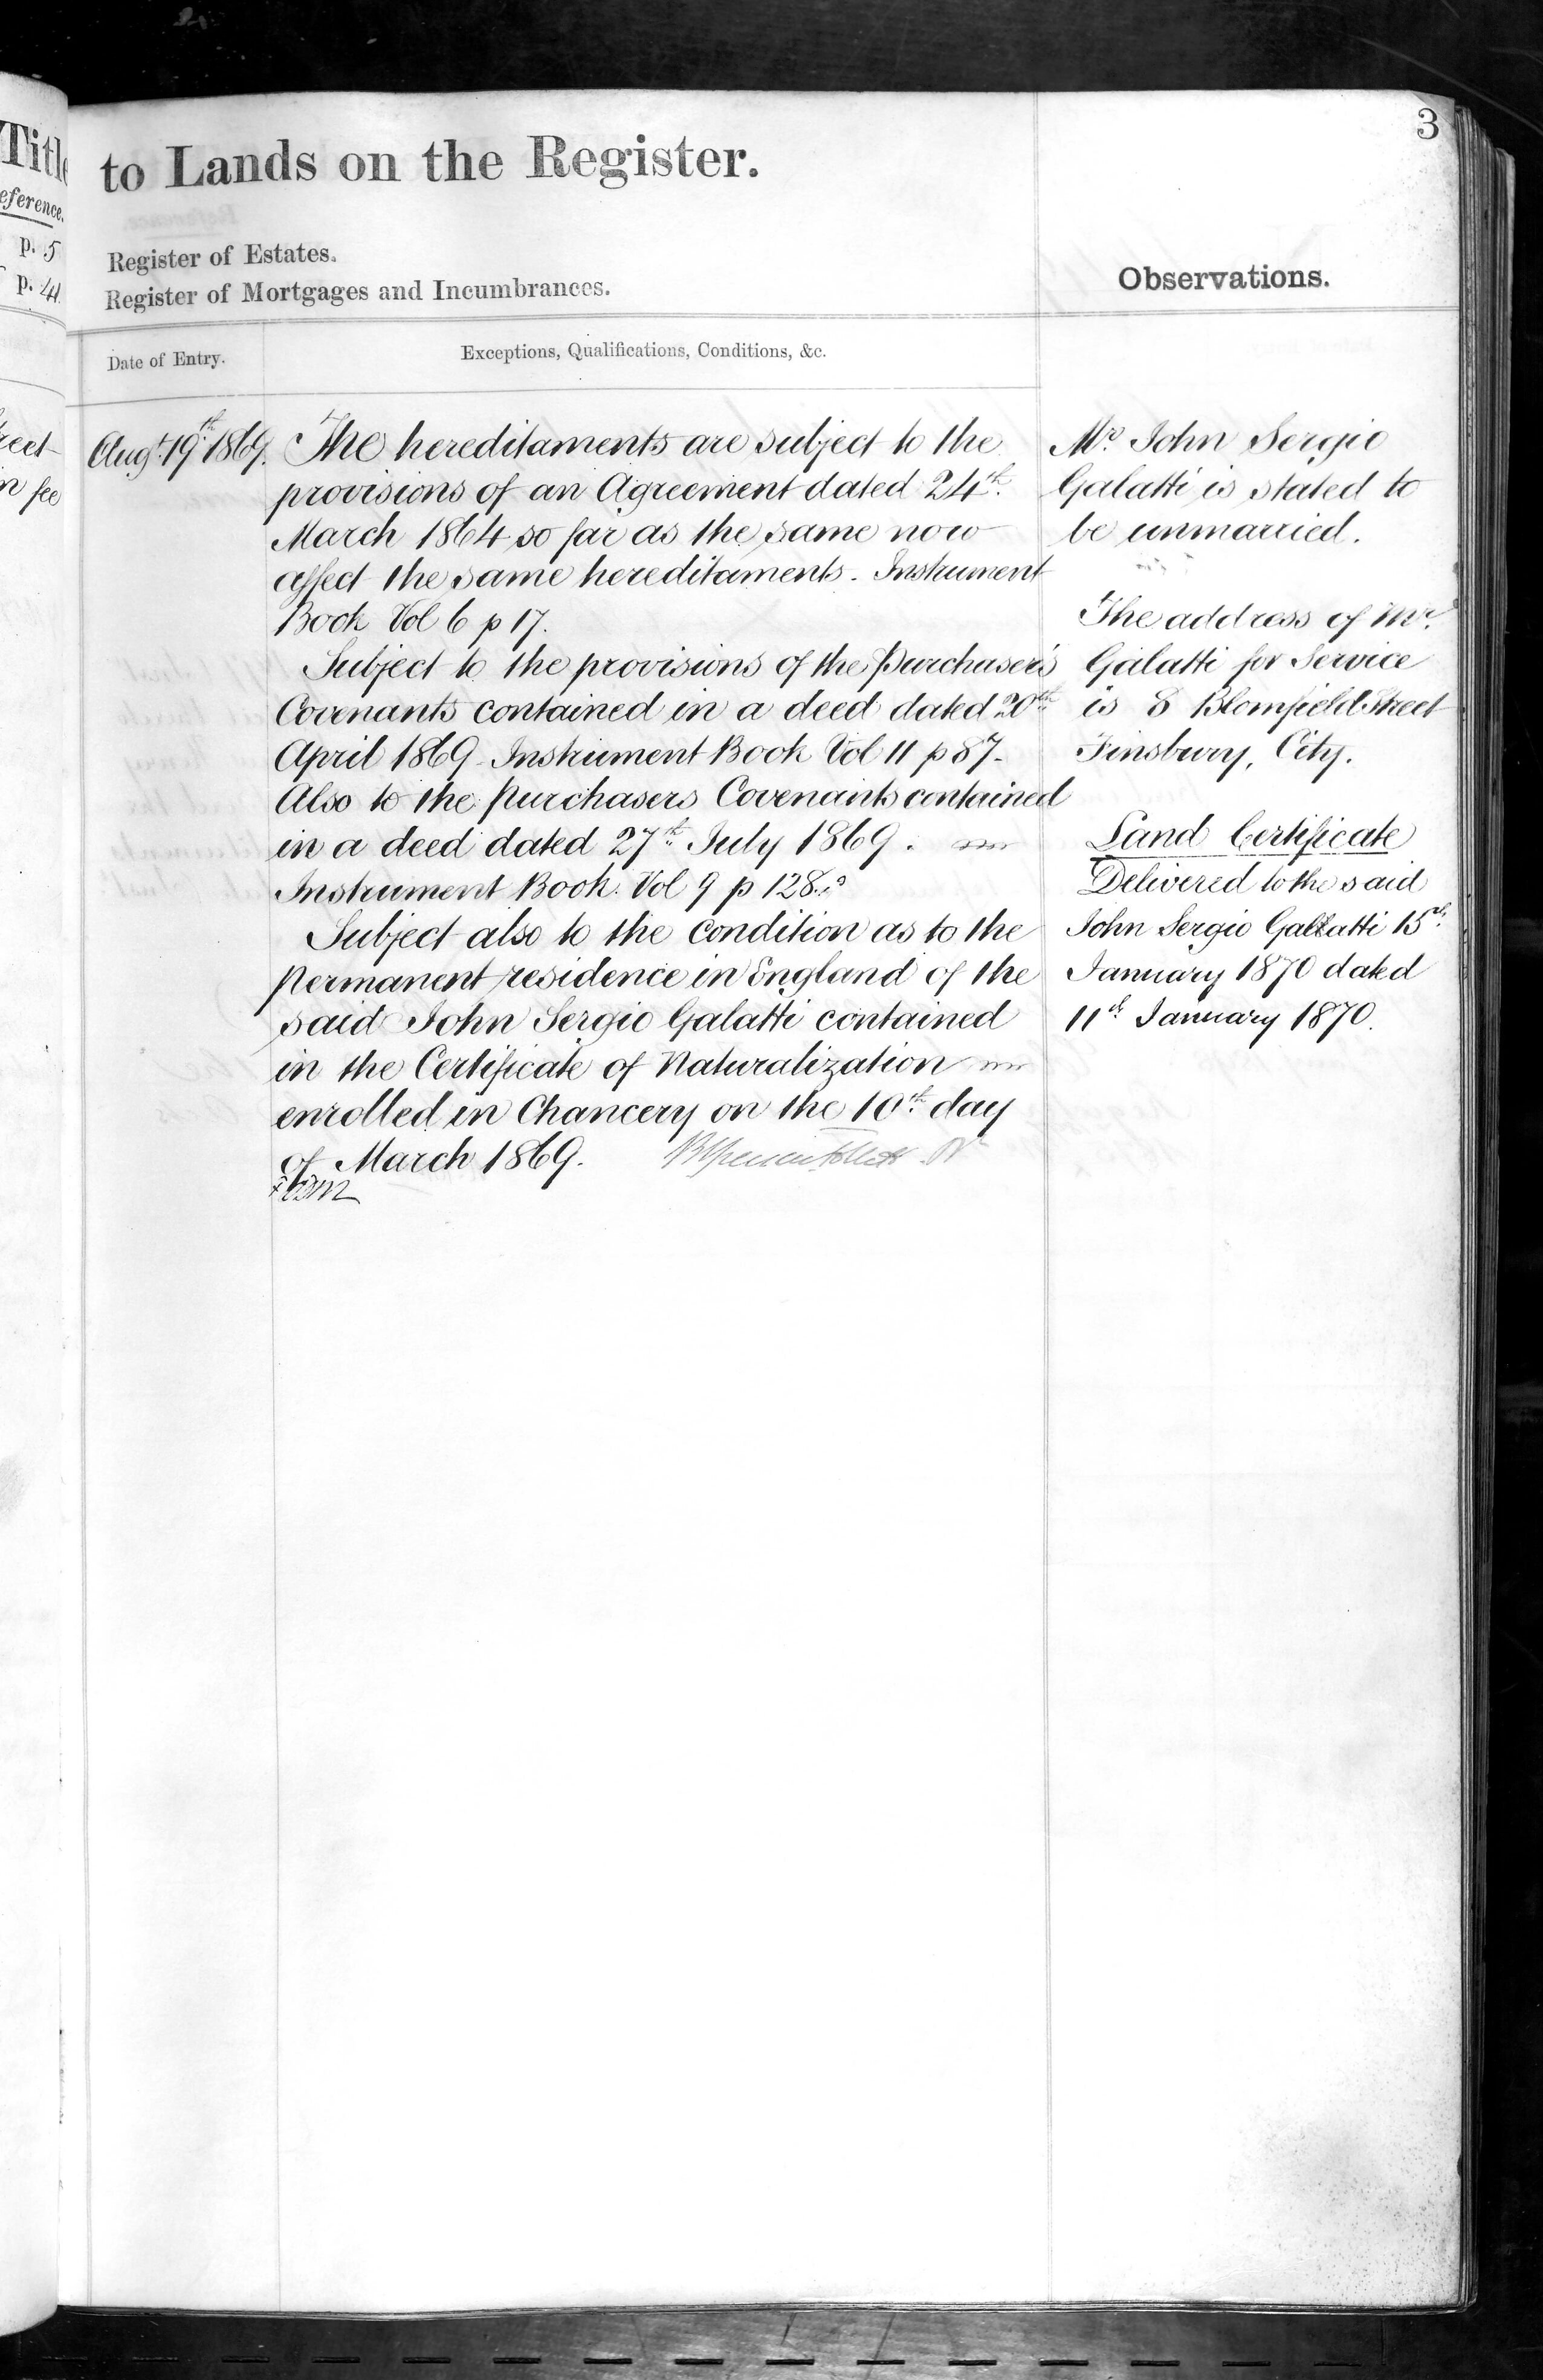 Title
eference.
p. 5
p. 4
reet
n fee
3
to Lands on the Register.
Register of Estates.
Register of Mortgages and Incumbrances.
Observations.
Date of Entry.
Exceptions, Qualifications, Conditions, &c.
Augt. 19th 1869.
The hereditaments are subject to the
provisions of an Agreement dated 24th.
March 1864 so far as the same now
affect the same hereditaments. Instrument
Book Vol 6 p 17.
Subject to the provisions of the Purchaser's
Covenants contained in a deed dated 20th
April 1869. Instrument Book Vol 11 p 87.
Also to the Purchasers Covenants contained
in a deed dated 27th July 1869.
Instrument Book. Vol 9 p 128.
Subject also to the condition as to the
permanent residence in England of the
said John Sergio Galatti contained
in the Certificate of Naturalization
enrolled in Chancery on the 10th day
of March 1869.
Mr. John Sergio
Galatti is stated to
be unmarried.
The address of Mr.
Galatti for Service
is 8 Blomfield Street
Finsbury, City.
Land Certificate
Delivered to the said
John Sergio Galatti 15th
January 1870 dated
11th January 1870.